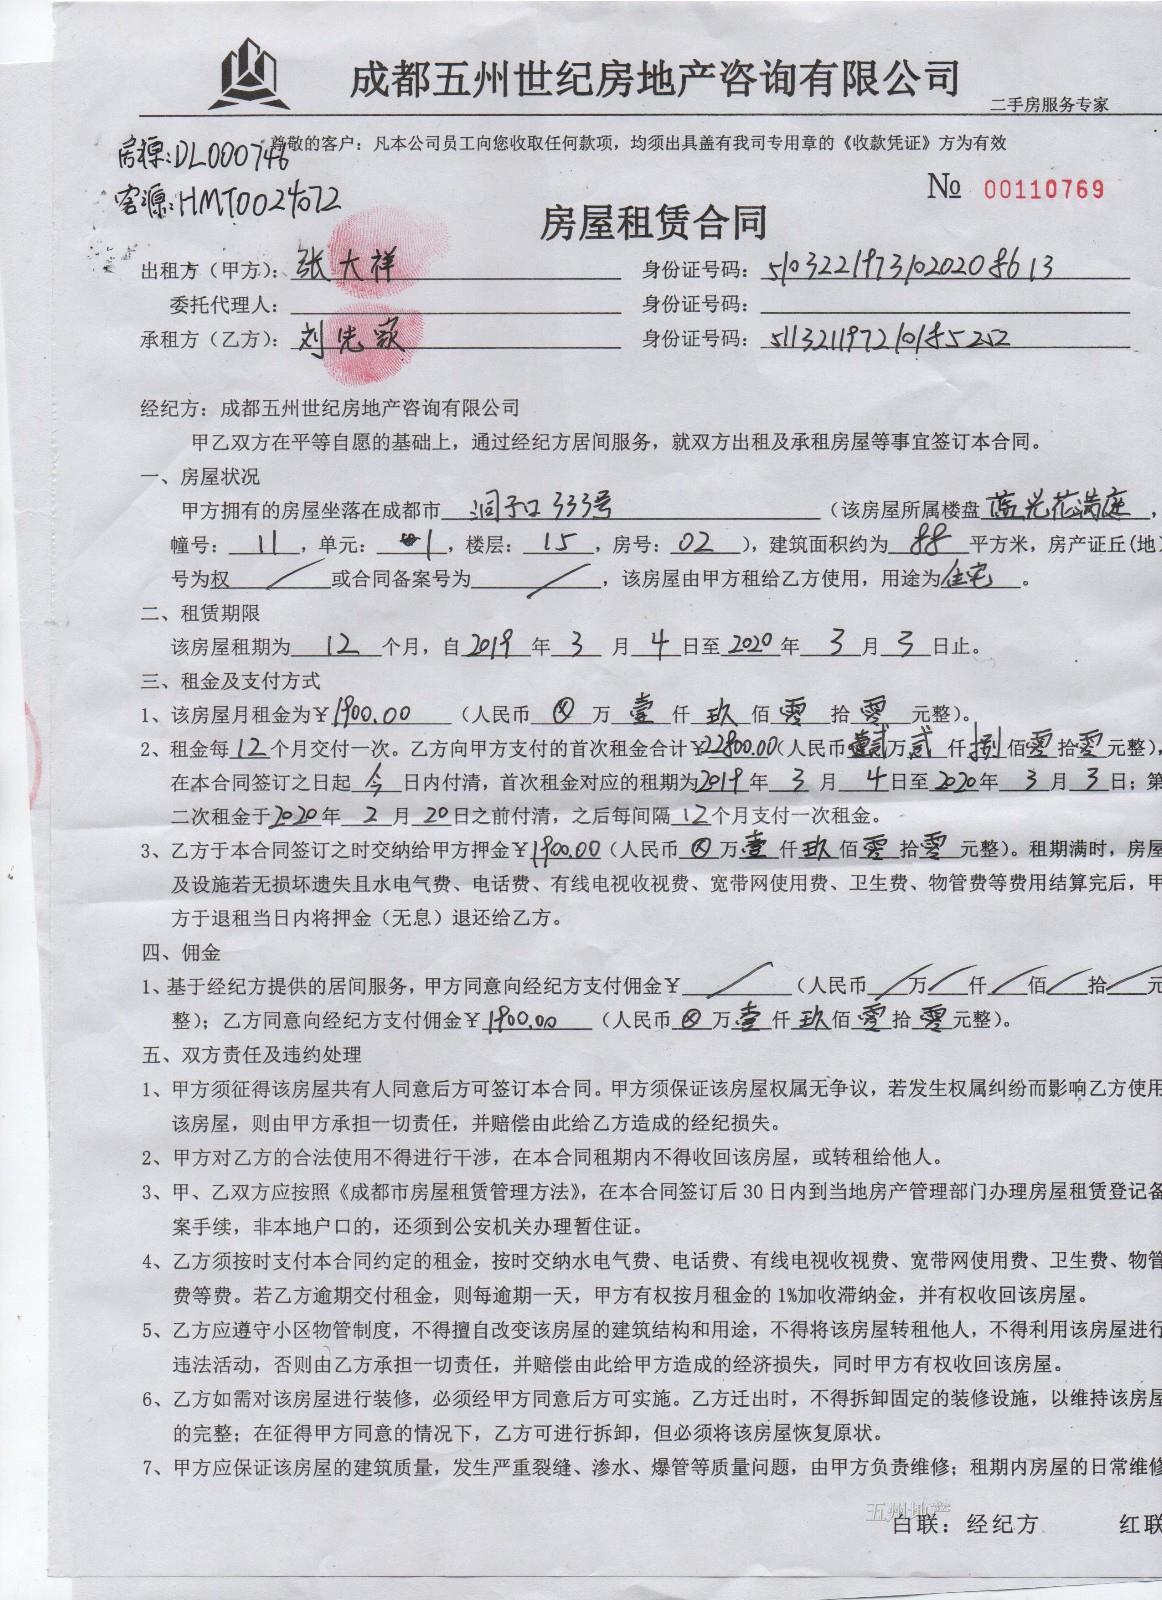 成都五州世纪房地产咨询有限公司
二手房服务专家
尊敬的客户：凡本公司员工向您收取任何款项，均须出具盖有我司专用章的《收款凭证》方为有效
房源:DL000746
客源:HMT0024072
№ 00110769
房屋租赁合同
出租方（甲方）：张大祥 身份证号码：
委托代理人： 身份证号码：
承租方（乙方）：刘先 身份证号码：
经纪方：成都五州世纪房地产咨询有限公司
甲乙双方在平等自愿的基础上，通过经纪方居间服务，就双方出租及承租房屋等事宜签订本合同。
一、房屋状况
甲方拥有的房屋坐落在成都市 洞子口333号 （该房屋所属楼盘 蓝光花满庭 ，
幢号： 11 ，单元： 1 ，楼层： 15 ，房号： 02 ），建筑面积约为 88 平方米，房产证丘(地)
号为权 / 或合同备案号为 / ，该房屋由甲方租给乙方使用，用途为 住宅 。
二、租赁期限
该房屋租期为 12 个月，自 2019 年 3 月 4 日至 2020 年 3 月 3 日止。
三、租金及支付方式
1、该房屋月租金为￥1900.00 （人民币 ⊗ 万 壹 仟 玖 佰 零 拾 零 元整）。
2、租金每 12 个月交付一次。乙方向甲方支付的首次租金合计￥22800.00（人民币 贰 万 贰 仟 捌 佰 零 拾 零 元整），
在本合同签订之日起 今 日内付清，首次租金对应的租期为 2019 年 3 月 4 日至 2020 年 3 月 3 日；第
二次租金于 2020 年 2 月 20 日之前付清，之后每间隔 12 个月支付一次租金。
3、乙方于本合同签订之时交纳给甲方押金￥1900.00（人民币 ⊗ 万 壹 仟 玖 佰 零 拾 零 元整）。租期满时，房屋
及设施若无损坏遗失且水电气费、电话费、有线电视收视费、宽带网使用费、卫生费、物管费等费用结算完后，甲
方于退租当日内将押金（无息）退还给乙方。
四、佣金
1、基于经纪方提供的居间服务，甲方同意向经纪方支付佣金￥ / （人民币 / 万 / 仟 / 佰 / 拾 / 元
整）；乙方同意向经纪方支付佣金￥1900.00 （人民币 ⊗ 万 壹 仟 玖 佰 零 拾 零 元整）。
五、双方责任及违约处理
1、甲方须征得该房屋共有人同意后方可签订本合同。甲方须保证该房屋权属无争议，若发生权属纠纷而影响乙方使用
该房屋，则由甲方承担一切责任，并赔偿由此给乙方造成的经纪损失。
2、甲方对乙方的合法使用不得进行干涉，在本合同租期内不得收回该房屋，或转租给他人。
3、甲、乙双方应按照《成都市房屋租赁管理方法》，在本合同签订后 30 日内到当地房产管理部门办理房屋租赁登记备
案手续，非本地户口的，还须到公安机关办理暂住证。
4、乙方须按时支付本合同约定的租金，按时交纳水电气费、电话费、有线电视收视费、宽带网使用费、卫生费、物管
费等费。若乙方逾期交付租金，则每逾期一天，甲方有权按月租金的 1%加收滞纳金，并有权收回该房屋。
5、乙方应遵守小区物管制度，不得擅自改变该房屋的建筑结构和用途，不得将该房屋转租他人，不得利用该房屋进行
违法活动，否则由乙方承担一切责任，并赔偿由此给甲方造成的经济损失，同时甲方有权收回该房屋。
6、乙方如需对该房屋进行装修，必须经甲方同意后方可实施。乙方迁出时，不得拆卸固定的装修设施，以维持该房屋
的完整；在征得甲方同意的情况下，乙方可进行拆卸，但必须将该房屋恢复原状。
7、甲方应保证该房屋的建筑质量，发生严重裂缝、渗水、爆管等质量问题，由甲方负责维修；租期内房屋的日常维修
五州地产
白联：经纪方 红联